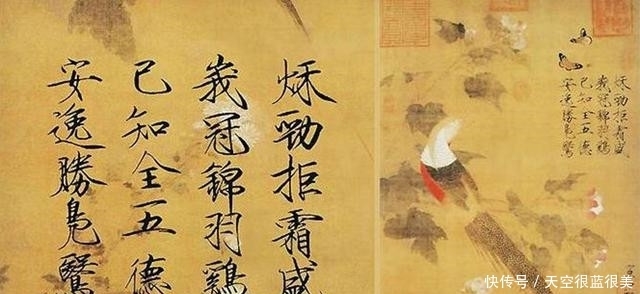 秌勁拒霜盛
峩冠錦羽鷄
已知全五德
安逸勝鳧鷖
秌勁拒霜盛
峩冠錦羽鷄
已知全五德
安逸勝鳧鷖
快传号/天空很蓝很美